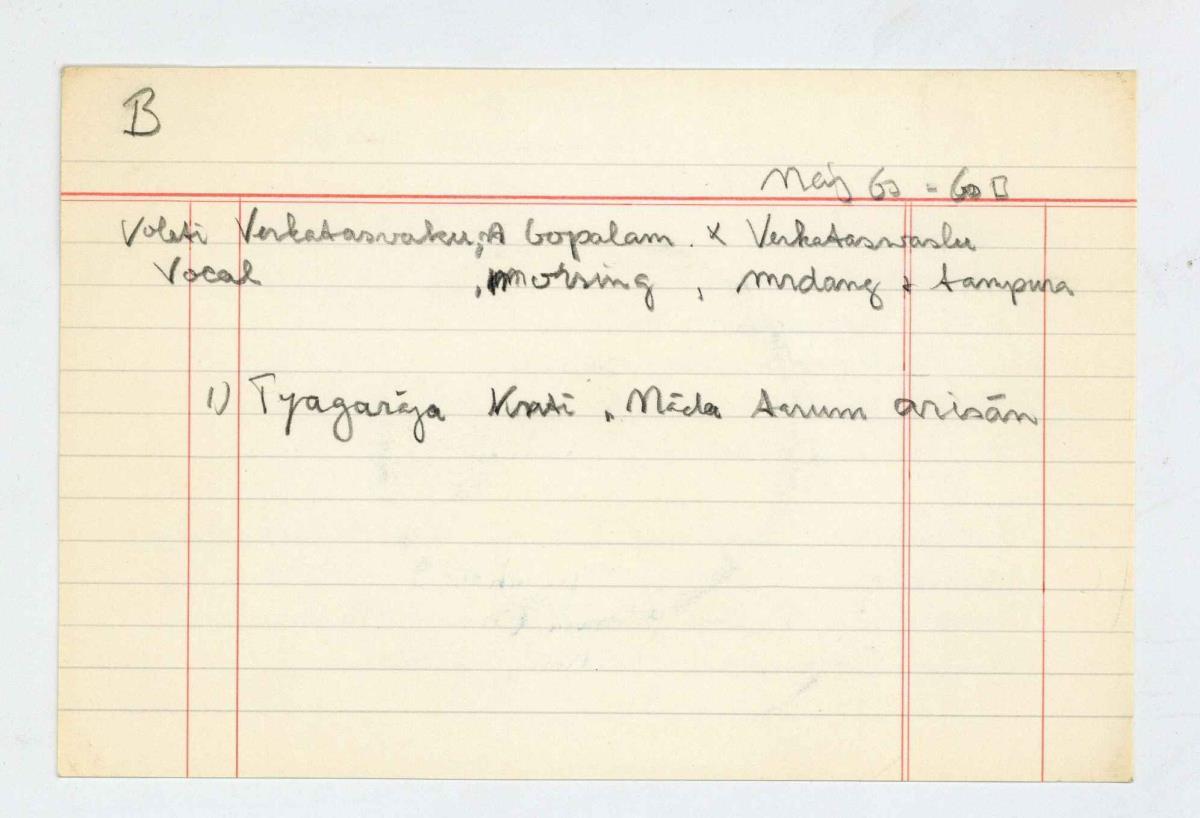 B
Maj 60 - 60
Voleti Venkatasvaku, A Gopalam. x Venkataswaslu
Vocal , morsing , mrdang + tampura
1) Tyagarāja Krati " Nāda Tarum arisān